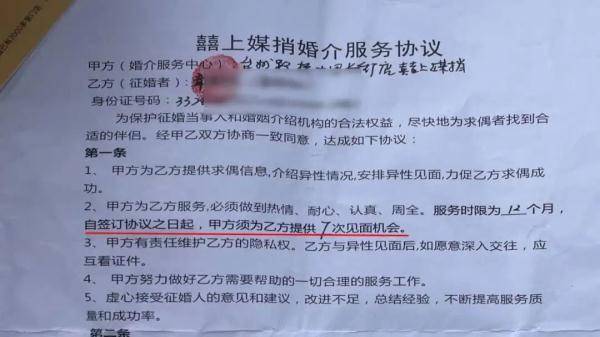 囍上媒捎婚介服务协议
甲方（婚介服务中心）台州路桥 囍上媒捎
乙方（征婚者）：
身份证号码：33
为保护征婚当事人和婚姻介绍机构的合法权益，尽快地为求偶者找到合
适的伴侣。经甲乙双方协商一致同意，达成如下协议：
第一条
1、甲方为乙方提供求偶信息,介绍异性情况,安排异性见面,力促乙方求偶成
功。
2、甲方为乙方服务,必须做到热情、耐心、认真、周全。服务时限为12个月，
自签订协议之日起，甲方须为乙方提供7次见面机会。
3、甲方有责任维护乙方的隐私权。乙方与异性见面后,如愿意深入交往，应
互看证件。
4、甲方努力做好乙方需要帮助的一切合理的服务工作。
5、虚心接受征婚人的意见和建议，改进不足，总结经验，不断提高服务质
量和成功率。
第二条